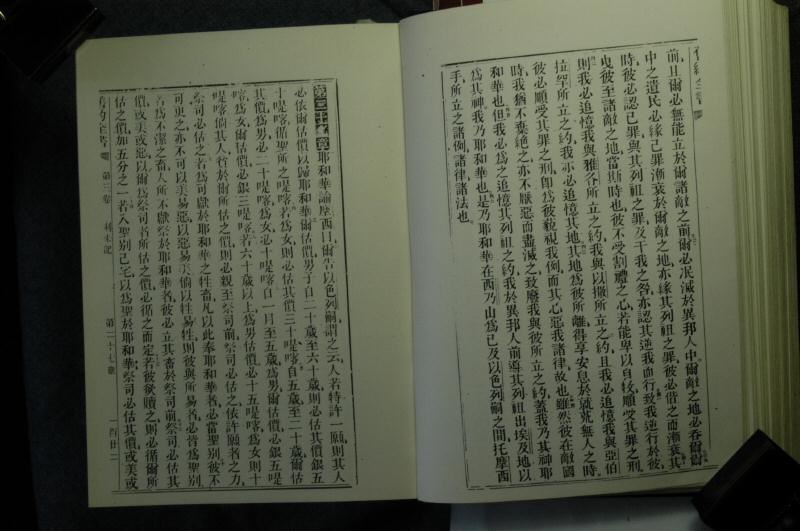 舊約全書
前且爾必無能立於爾諸敵之前爾必泯滅於異邦人中爾敵之地必吞爾爾
中之遺民必緣己罪漸衰於爾敵之地亦緣其列祖之罪彼必偕之而漸衰其
時彼必認己罪與其列祖之罪及干我之咎亦認其逆我而行致我逆行於彼
曳彼至諸敵之地當斯時也彼不受割禮之心若能卑以自牧順受其罪之刑
則我必追憶我與雅各所立之約我與以撒所立之約且我必追憶我與亞伯
拉罕所立之約我亦必追憶其地其地為彼所離得享安息於就荒無人之時
彼必順受其罪之刑卽為彼藐視我例而其心惡我諸律故也雖然彼在敵國
時我猶不棄絕之亦不厭惡而盡滅之致廢我與彼所立之約蓋我乃其神耶
和華也但我必為之追憶其列祖之約我於異邦人前導其列祖出埃及地以
為其神我乃耶和華也是乃耶和華在西乃山為己及以色列嗣之間托摩西
手所立之諸例諸律諸法也
第二十七章 耶和華諭摩西曰爾告以色列嗣謂之云人若特許一願則其人
必依爾估價以歸耶和華爾估價男子自二十歲至六十歲則必估其價銀五
十㖷喀循聖所之㖷喀若為女則必估其價三十㖷喀自五歲至二十歲爾估
其價為男必二十㖷喀為女必十㖷喀自一月至五歲為男爾估價必銀五㖷
喀為女爾估價必銀三㖷喀若六十歲以上為男估價必十五㖷喀為女則十
㖷喀倘其人貧於爾所估之價則必親至祭司前祭司必估之依許願者之力
祭司必估之若為可獻於耶和華之牲畜凡以此奉耶和華者必當聖別彼不
可更之亦不可以美易惡以惡易美倘以牲易牲則彼與所易者必皆為聖別
若為不潔之畜人所不獻祭於耶和華者彼必立其畜於祭司前祭司必估其
價或美或惡以爾為祭司者所估之價必循之而定若彼欲贖之則必循爾所
估之價加五分之一若人聖別己宅以為聖於耶和華祭司必估其價或美或
舊約全書 第三卷 利未記 第二十七章 一百廿二